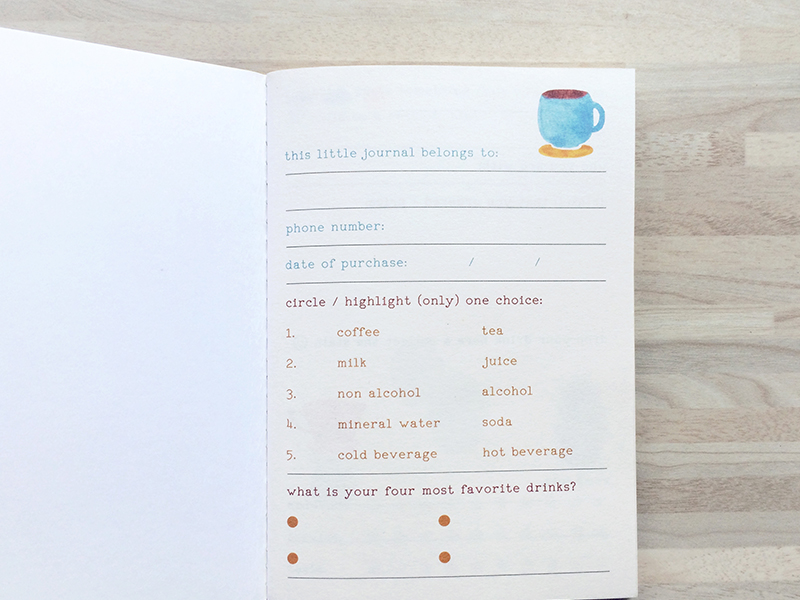 this little journal belongs to:
phone number:
date of purchase: / /
circle / highlight (only) one choice:
1. coffee tea
2. milk juice
3. non alcohol alcohol
4. mineral water soda
5. cold beverage hot beverage
what is your four most favorite drinks?